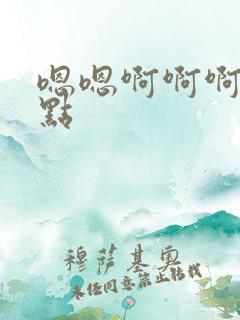 嗯嗯啊啊啊
點
穆萨基奥
未经同意禁止转载